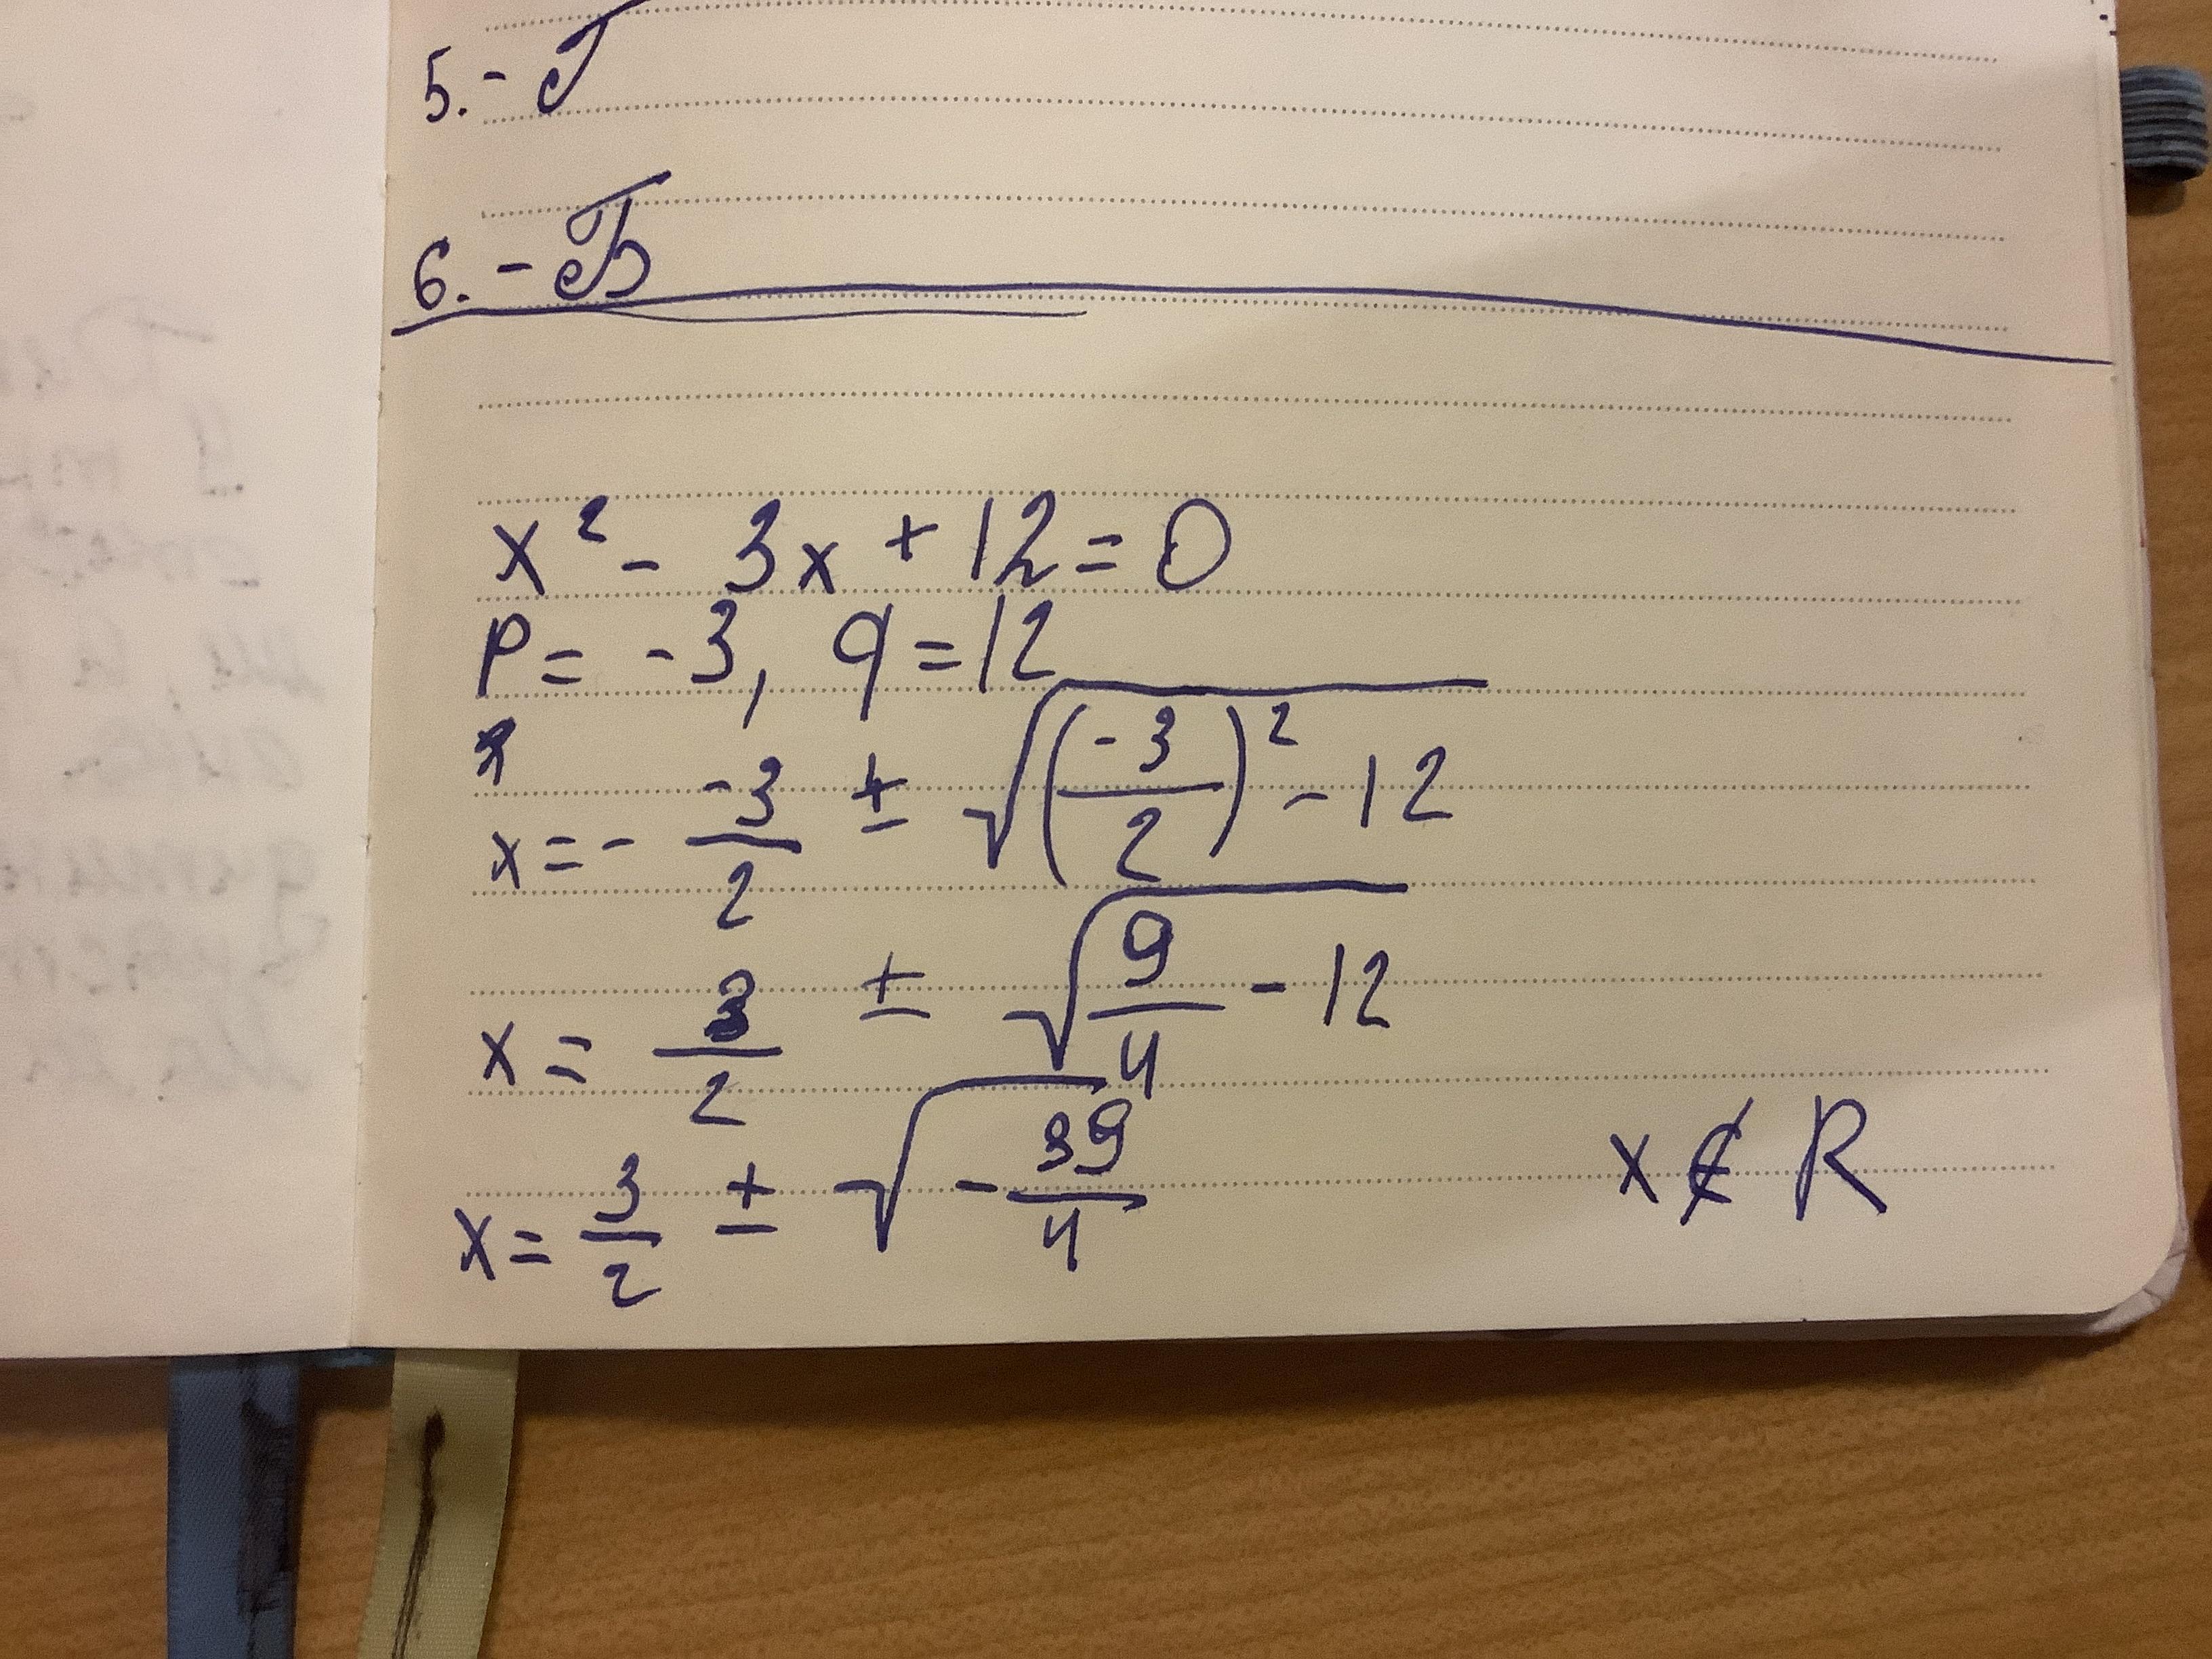 5. - Г
6. - Б
x² - 3x + 12 = 0
p = -3, q = 12
x = - -3/2 ± √((-3/2)² - 12)
x = 3/2 ± √(9/4 - 12)
x = 3/2 ± √(-39/4)
x ∉ R